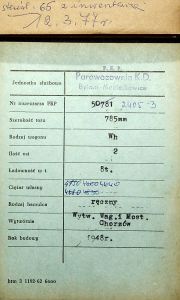 12.3.77r
P. K. P.
Jednostka służbowa Parowozownia K.D.
Nr inwentarza PKP 50781 2405-3
Szerokość toru 785mm
Rodzaj wagonu Wh
Ilość osi 2
Ładowność w t 8t.
Ciężar własny
Rodzaj hamulca ręczny
Wytwórnia Wytw. Wag. i Most. Chorzów
Rok budowy 1948r.